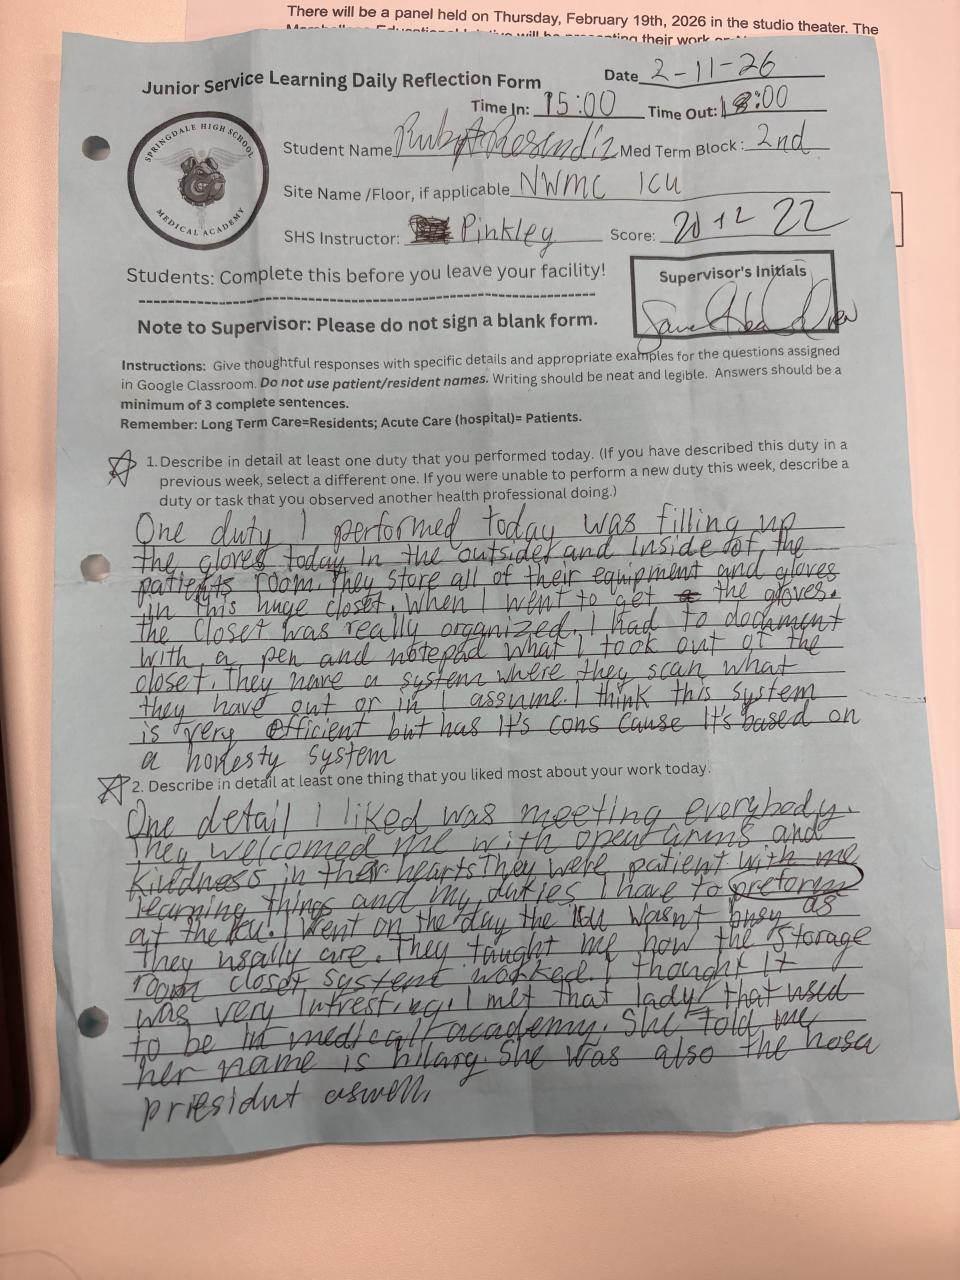 There will be a panel held on Thursday, February 19th, 2026 in the studio theater. The
Junior Service Learning Daily Reflection Form
Date 2-11-26
Time In: 15:00 Time Out: 18:00
SPRINGDALE HIGH SCHOOL
MEDICAL ACADEMY
Student Name Ruby A Resendiz Med Term Block: 2nd
Site Name /Floor, if applicable NWMC ICU
SHS Instructor: Pinkley Score: 20 +2 22
Students: Complete this before you leave your facility!
Supervisor's Initials
Note to Supervisor: Please do not sign a blank form.
Instructions: Give thoughtful responses with specific details and appropriate examples for the questions assigned
in Google Classroom. Do not use patient/resident names. Writing should be neat and legible. Answers should be a
minimum of 3 complete sentences.
Remember: Long Term Care=Residents; Acute Care (hospital)= Patients.
1. Describe in detail at least one duty that you performed today. (If you have described this duty in a
previous week, select a different one. If you were unable to perform a new duty this week, describe a
duty or task that you observed another health professional doing.)
One duty I performed today was filling up
the gloves today in the outsides and inside of, the
patients room. They store all of their equipment and gloves
in this huge closet. When I went to get the gloves.
the closet was really organized. I had to document
with a pen and notepad what I took out of the
closet. They have a system where they scan what
they have out or in I assume. I think this system
is very efficient but has it's cons cause it's based on
a honesty system
2. Describe in detail at least one thing that you liked most about your work today.
One detail I liked was meeting everybody.
They welcomed me with open arms and
kindness in their hearts They were patient with me
learning things and my duties I have to preform
at the ICU. I went on the day the ICU wasn't busy as
they usally are. They taught me how the storage
room closet system worked. I thought it
was very intresting. I met that lady that used
to be in medicall academy. She told me
her name is hilary. She was also the hosa
priesidnt aswell.